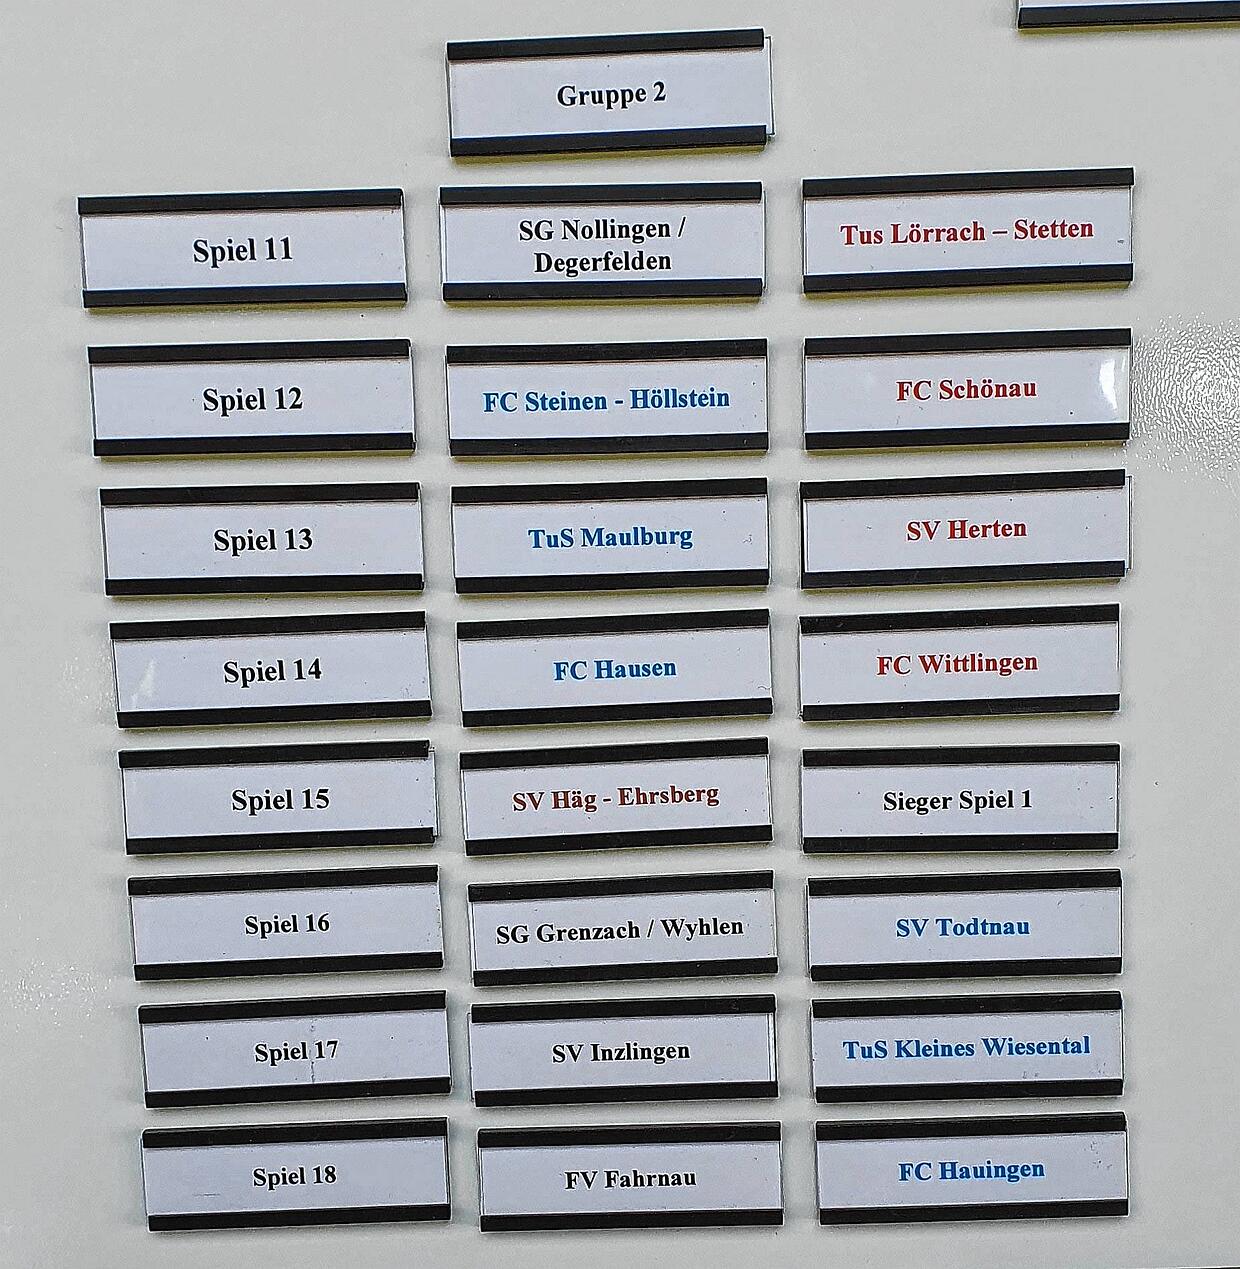 Gruppe 2
Spiel 11
SG Nollingen /
Degerfelden
Tus Lörrach – Stetten
Spiel 12
FC Steinen - Höllstein
FC Schönau
Spiel 13
TuS Maulburg
SV Herten
Spiel 14
FC Hausen
FC Wittlingen
Spiel 15
SV Häg - Ehrsberg
Sieger Spiel 1
Spiel 16
SG Grenzach / Wyhlen
SV Todtnau
Spiel 17
SV Inzlingen
TuS Kleines Wiesental
Spiel 18
FV Fahrnau
FC Hauingen